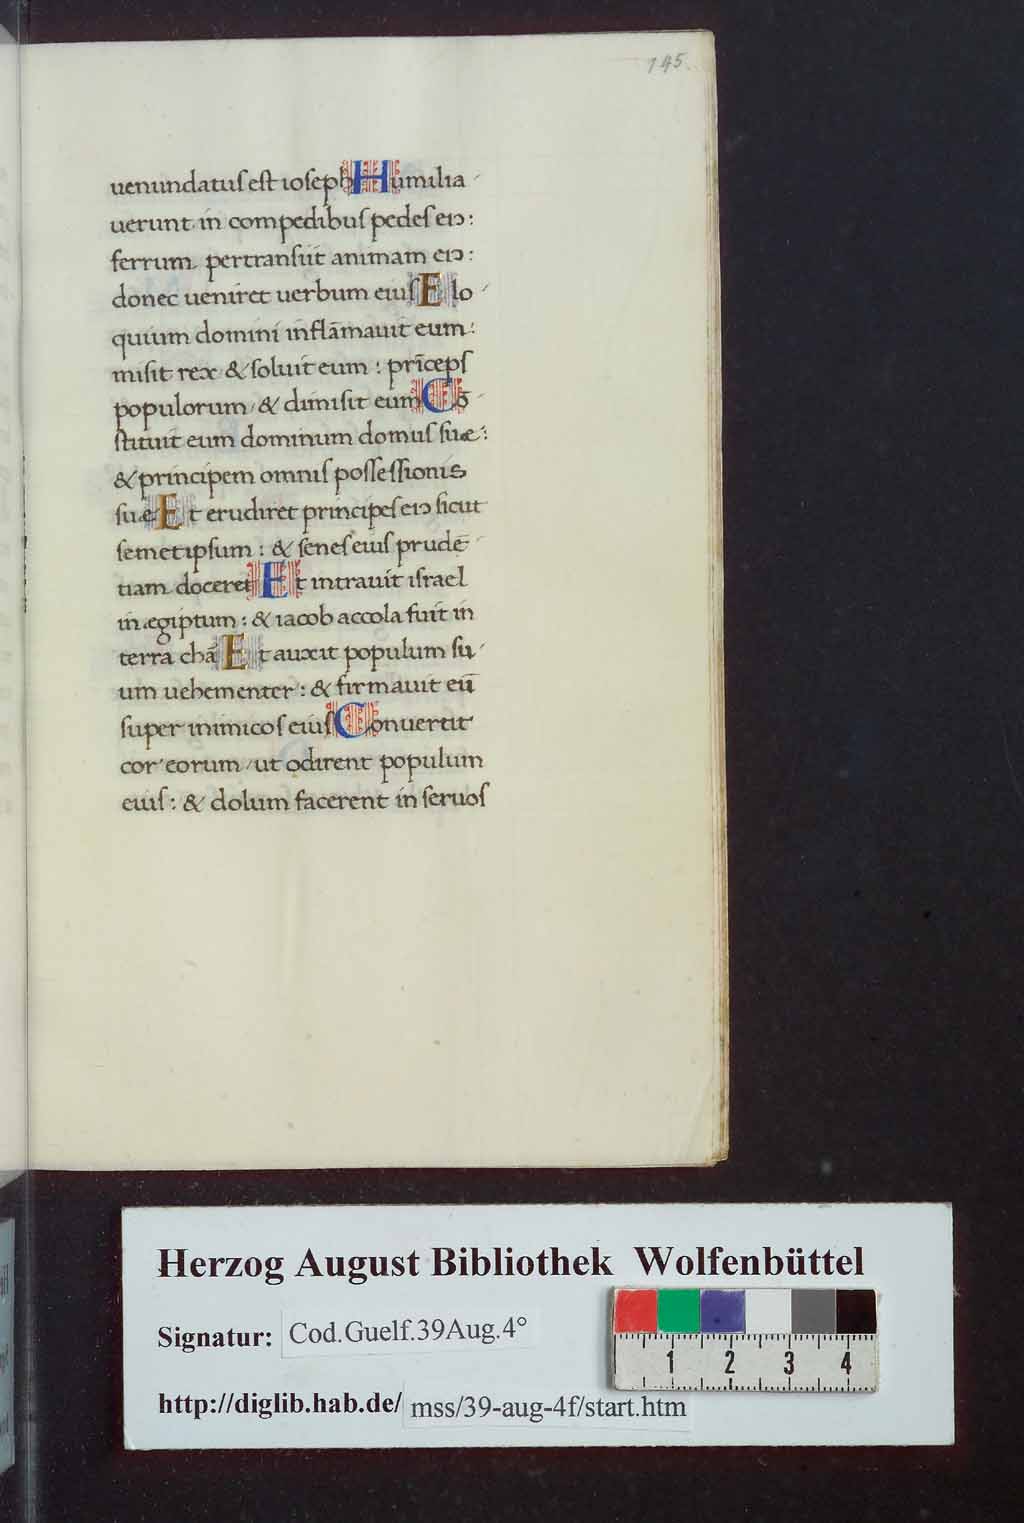 145
uenundatuſ eſt ioſeph Humilia-
uerunt in compedibuſ pedeſ eiɔ:
ferrum pertranſiit animam eiɔ:
donec ueniret uerbum eiuſ Elo-
quium domini inflāmauit eum:
miſit rex & ſoluit eum: prīcepſ
populorum, & dimiſit eum Cō-
ſtituit eum dominum domuſ ſuæ:
& principem omniſ poſſeſſionis
ſuæ Et erudiret principeſ eiɔ ſicut
ſemetipſum: & ſeneſ eiuſ prudē-
tiam doceret Et intrauit iſrael
in ægiptum: & iacob accola fuit in
terra chā Et auxit populum ſu-
um uehementer: & firmauit eū
ſuper inimicoſ eiuſ Conuertit
cor eorum, ut odirent populum
eiuſ: & dolum facerent in ſeruoſ
Herzog August Bibliothek Wolfenbüttel
Signatur: Cod.Guelf.39Aug.4°
1 2 3 4
http://diglib.hab.de/ mss/39-aug-4f/start.htm